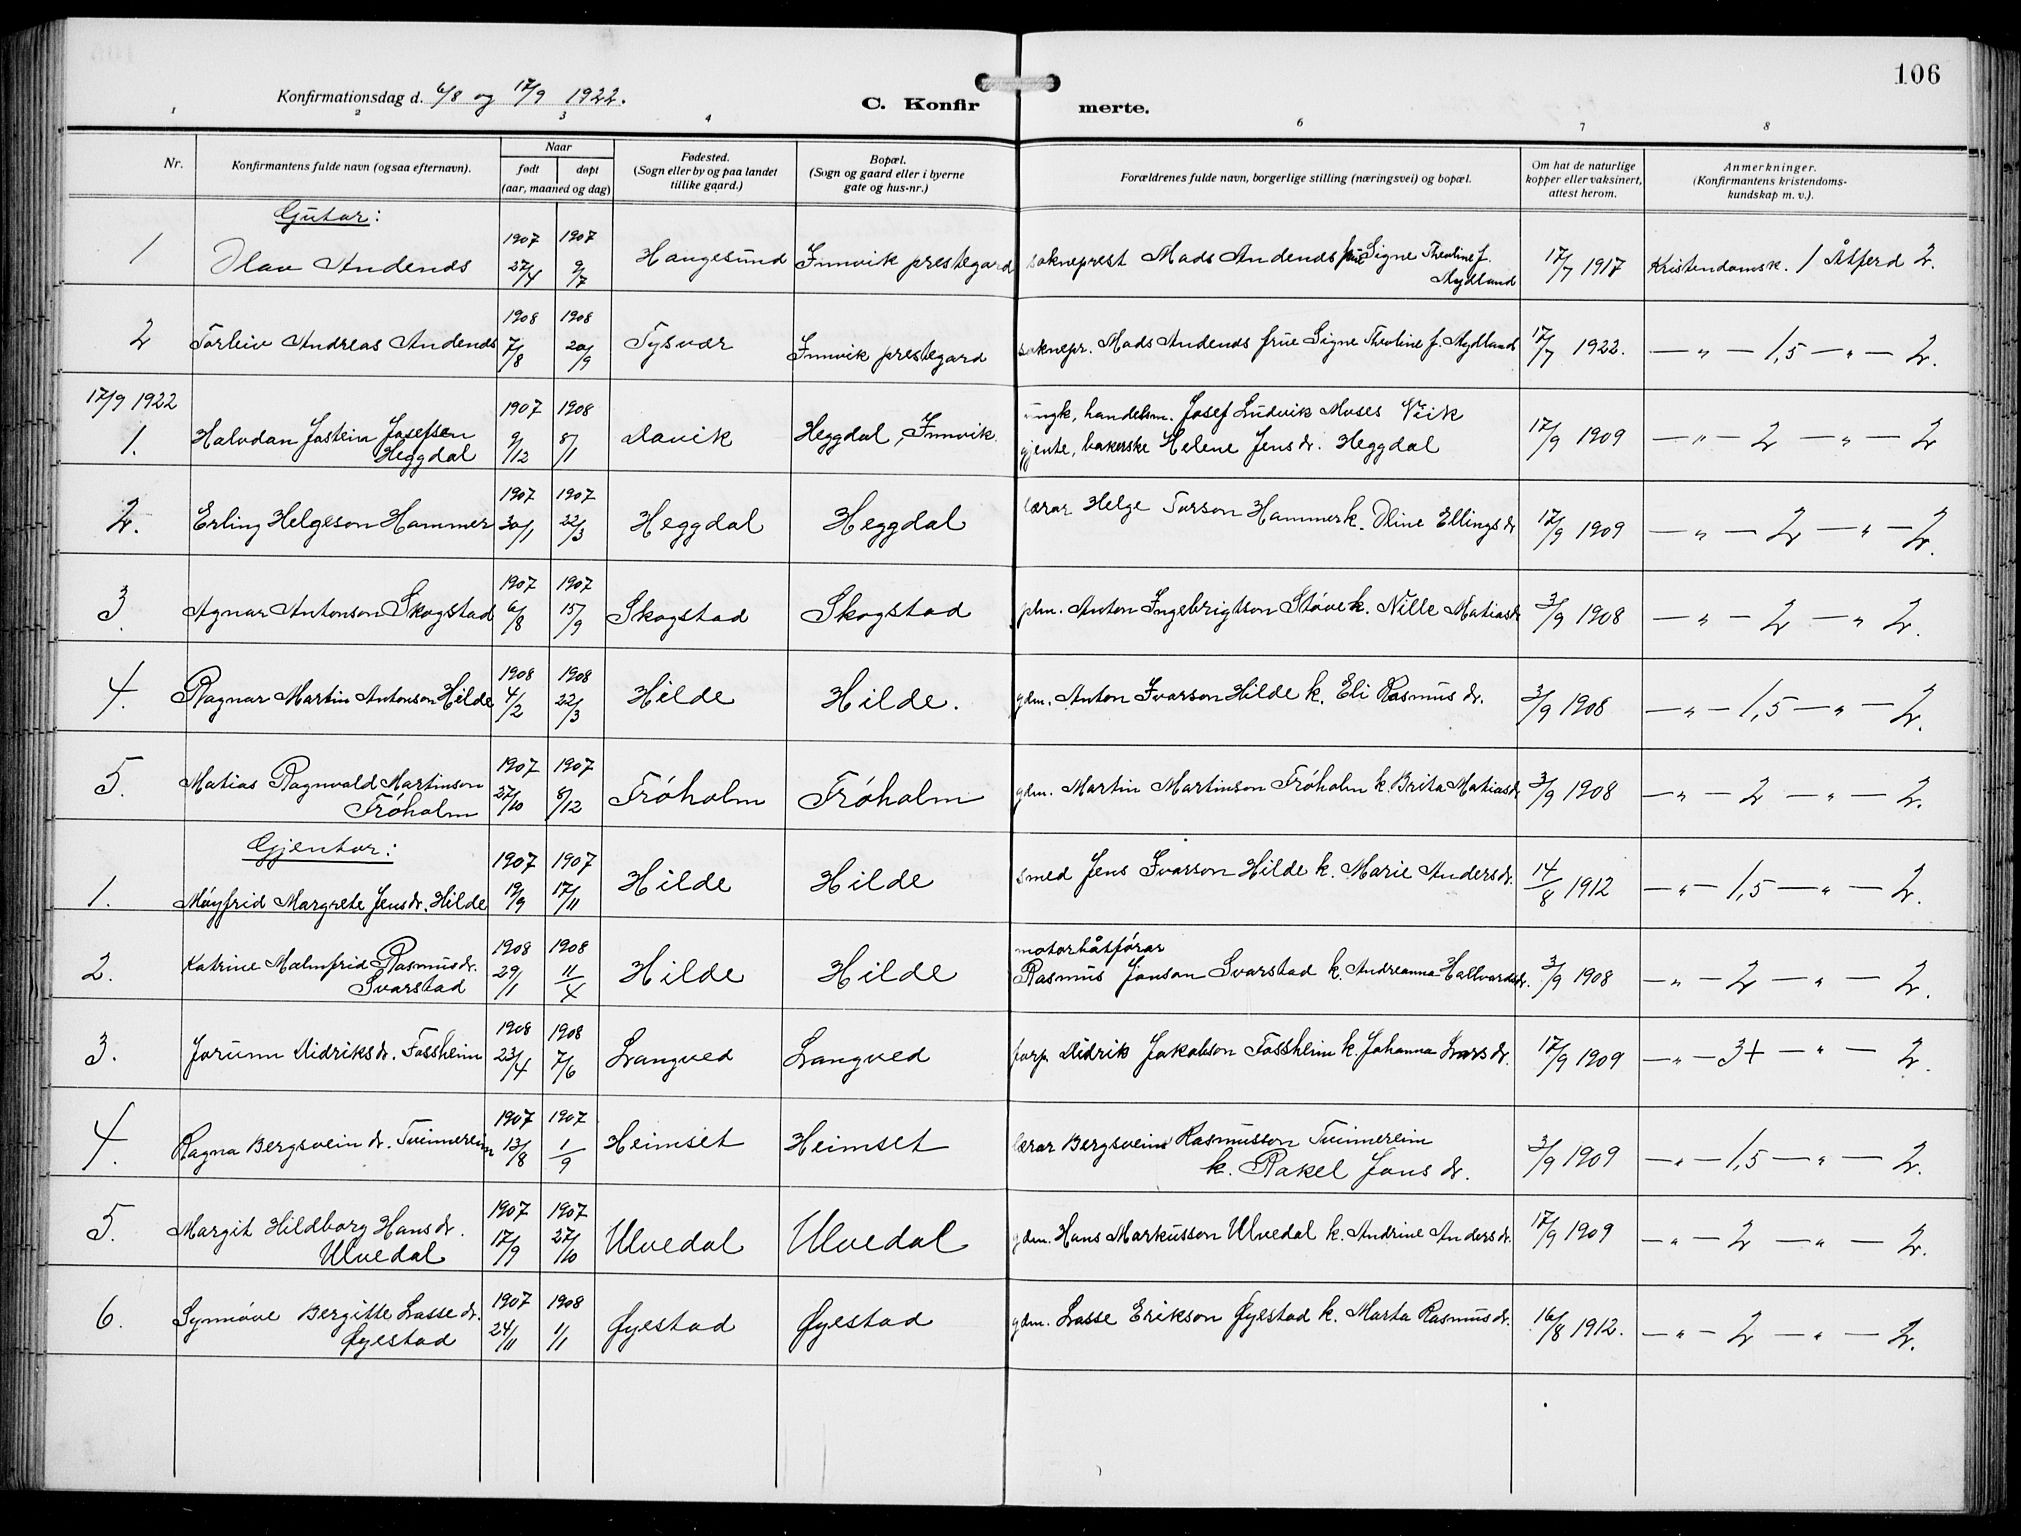 106
Konfirmationsdag d. 6/8 og 17/9 1922.
C. Konfirmerte.
1 2 3 4 6 7 8
Nr.
Konfirmantens fulde navn (ogsaa efternavn).
Naar
født døpt
(aar, maaned og dag)
Fødested.
(Sogn eller by og paa landet
tillike gaard.)
Bopæl.
(Sogn og gaard eller i byerne
gate og hus-nr.)
Forældrenes fulde navn, borgerlige stilling (næringsvei) og bopæl.
Om hat de naturlige
kopper eller vaksinert,
attest herom.
Anmerkninger.
(Konfirmantens kristendoms-
kundskap m. v.).
Gutar:
1 Olav Andends 1907 27/4 1907 9/7 Haugesund Innvik prestegard sokneprest Mads Andends frue Signe Theoline f. Nydland 17/7 1917 Kristendomsk. 1 Åtferd 2.
2 Torleiv Andreas Andends 1908 7/8 1908 20/9 Tysvær Innvik prestegard soknepr. Mads Andends frue Signe Theoline f. Nydland 17/7 1922. — " — 1,5 — " — 2.
17/9 1922
1. Halvdan Jostein Josefsen Heggdal 1907 9/12 1908 8/1 Davik Heggdal, Innvik. ungk, handelsm. Josef Ludvik Moses Vik
gjente, bakerske Helene Jensdr. Heggdal 17/9 1909 — " — 2 — " — 2
2. Erling Helgeson Hammer 1907 30/1 1907 22/3 Heggdal Heggdal lærar Helge Torson Hammer k. Oline Ellingsdr 17/9 1909 — " — 2 — " — 2.
3. Agnar Antonson Skogstad 1907 6/8 1907 15/9 Skogstad Skogstad plm. Anton Ingebrigtson Støve k. Nille Matiasdr 3/9 1908 — " — 2 — " 2.
4. Ragnar Martin Antonson Hilde 1908 4/2 1908 22/3 Hilde Hilde. gdm. Anton Ivarson Hilde k. Eli Rasmusdr. 3/9 1908 — " — 1,5 — " — 2.
5. Matias Ragnvald Martinson Fróholm 1907 27/10 1907 8/12 Fróholm Fróholm gdm. Martin Martinson Fróholm k. Brita Matiasdr 3/9 1908 — " — 2 — " — 2.
Gjentor:
1. Móyfrid Margrete Jensdr. Hilde 1907 19/9 1907 17/11 Hilde Hilde smed Jens Ivarson Hilde k. Marie Andersdr. 14/8 1912 — " — 1,5 — " — 2.
2. Katrine Malmfrid Rasmusdr. Svarstad 1908 29/1 1908 11/4 Hilde Hilde motorbåtfórar
Rasmus Jonson Svarstad k. Andreanna Hallvardsdr. 3/9 1908 — " — 2 — " — 2.
3. Jorunn Didriksdr. Fossheim 1908 23/4 1908 7/6 Langved Langved forp. Didrik Jakobson Fossheim k. Johanna Larsdr. 17/9 1909 — " — 3+ — " — 2.
4. Ragna Bergsveindr. Tvinnereim 1907 13/8 1907 1/9 Heimset Heimset lærar Bergsvein Rasmusson Tvinnereim
k. Rakel Jonsdr. 3/9 1909 — " — 1,5 — " — 2.
5. Margit Hildborg Hansdr. Ulvedal 1907 17/9 1907 27/10 Ulvedal Ulvedal gdm. Hans Markusson Ulvedal k. Andrine Andersdr. 17/9 1909 — " — 2 — " — 2.
6. Synnóve Bergitte Lassedr. Øyestad 1907 24/11 1908 1/1 Øyestad Øyestad gdm. Lasse Erikson Øyestad k. Marta Rasmusdr. 16/8 1912. — " — 2 — " — 2.